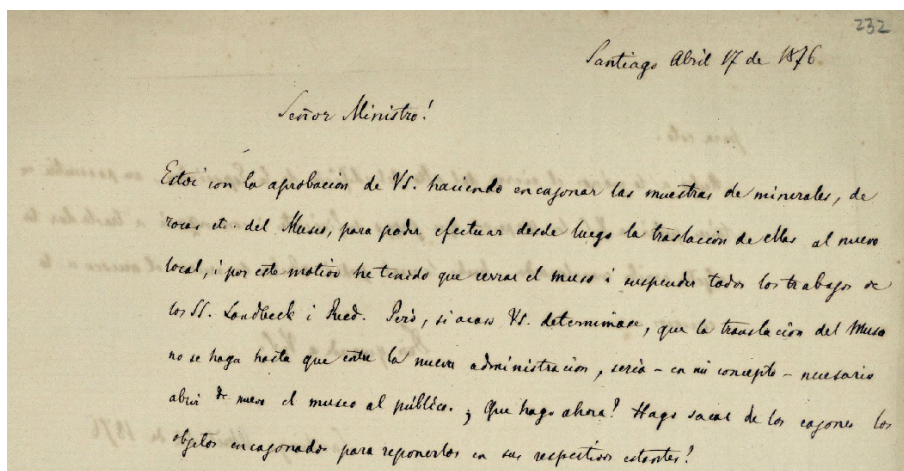 232
Santiago Abril 17 de 1876
Señor Ministro!
Estoi con la aprobacion de VS. haciendo encagonar las muestras de minerales, de
rocas etc. del Museo, para poder efectuar desde luego la traslacion de ellas al nuevo
local, i por este motivo he tenido que cerrar el museo i suspender todos los trabajos de
los SS. Landbeck i Reed. Però, si acaso VS. determinase, que la translacion del Museo
no se haga hasta que entre la nueva administracion, seria – en mi concepto – necesario
abrir de nuevo el museo al público. ¿ Que hago ahora? Hago sacar de los cagones los
objetos encagonados para reponerlos en sus respectivos estantes?